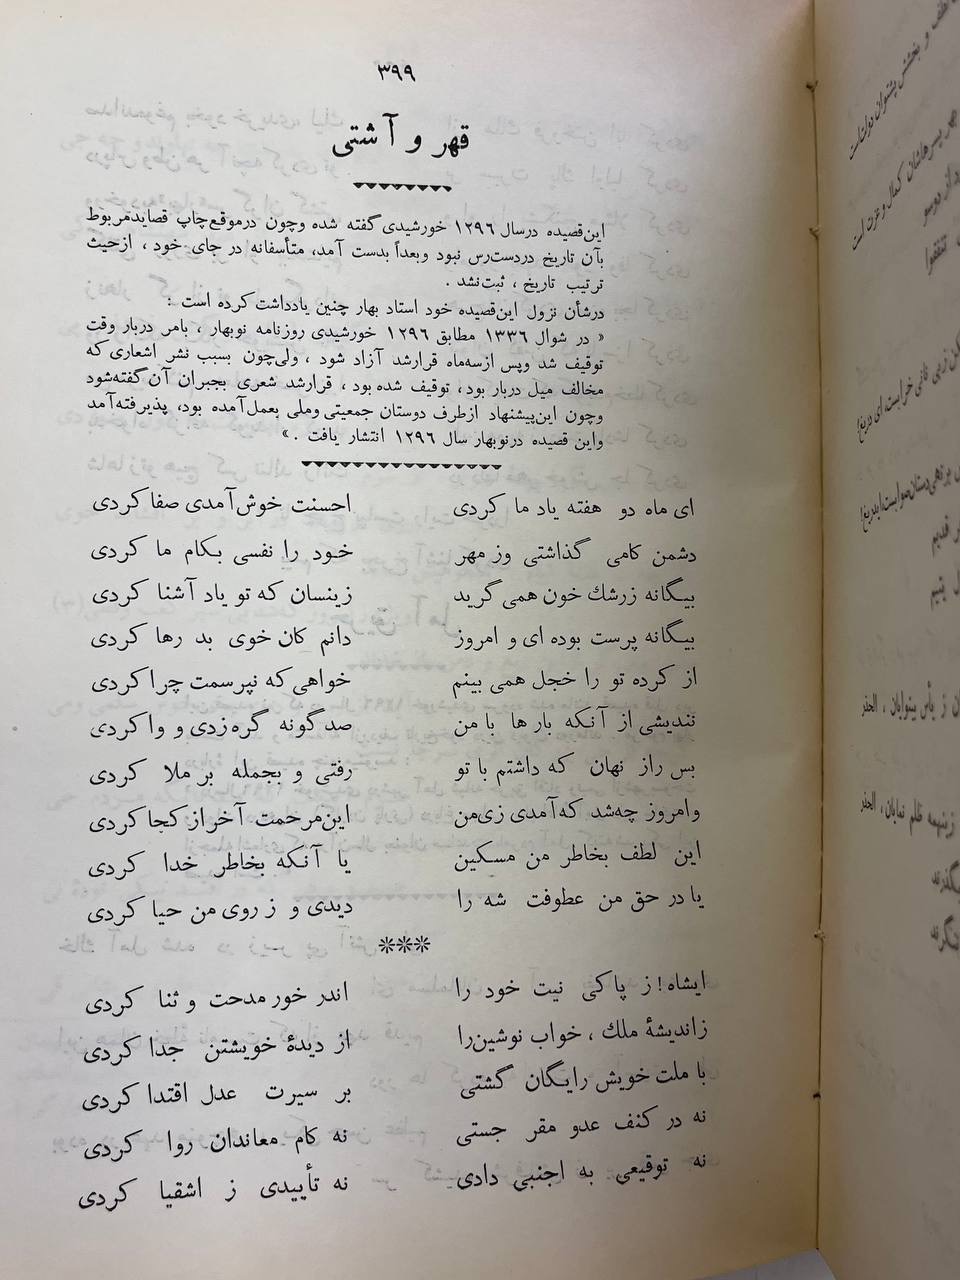 ۳۹۹
قهر و آشتی
این‌قصیده درسال ۱۲۹۶ خورشیدی گفته شده وچون درموقع‌چاپ قصایدمربوط
بآن تاریخ دردست‌رس نبود وبعداً بدست آمد، متأسفانه در جای خود ، ازحیث
ترتیب تاریخ ، ثبت‌نشد .
درشأن نزول این‌قصیده خود استاد بهار چنین یادداشت‌کرده است :
« در شوال ۱۳۳۶ مطابق ۱۲۹۶ خورشیدی روزنامه نوبهار ، بامر دربار وقت
توقیف شد وپس ازسه‌ماه قرارشد آزاد شود ، ولی‌چون بسبب نشر اشعاری که
مخالف میل دربار بود ، توقیف شده بود ، قرارشد شعری بجبران آن‌گفته‌شود
وچون این‌پیشنهاد ازطرف دوستان جمعیتی وملی بعمل‌آمده بود، پذیرفته‌آمد
واین قصیده درنوبهار سال ۱۲۹۶ انتشار یافت .»
ای ماه دو هفته یاد ما کردی احسنت خوش‌آمدی صفا کردی
دشمن کامی گذاشتی وز مهر خود را نفسی بکام ما کردی
بیگانه زرشك خون همی گرید زینسان که تو یاد آشنا کردی
بیگانه پرست بوده ای و امروز دانم کان خوی بد رها کردی
از کرده تو را خجل همی بینم خواهی که نپرسمت چرا کردی
تندیشی از آنکه بار ها با من صدگونه گره‌زدی و وا کردی
بس راز نهان که داشتم با تو رفتی و بجمله بر ملا کردی
وامروز چه‌شد که‌آمدی زی‌من این‌مرحمت آخر از کجا کردی
این لطف بخاطر من مسکین یا آنکه بخاطر خدا کردی
یا در حق من عطوفت شه را دیدی و ز روی من حیا کردی
***
ایشاه! ز پاکی نیت خود را اندر خور مدحت و ثنا کردی
زاندیشهٔ ملك ، خواب نوشین‌را از دیدهٔ خویشتن جدا کردی
با ملت خویش رایگان گشتی بر سیرت عدل اقتدا کردی
نه در کنف عدو مقر جستی نه کام معاندان روا کردی
نه توقیعی به اجنبی دادی نه تأییدی ز اشقیا کردی